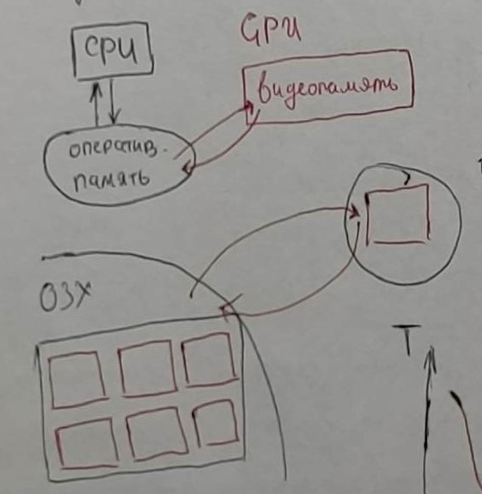 CPU
GPU
видеопамять
оператив.
память
ОЗУ
T